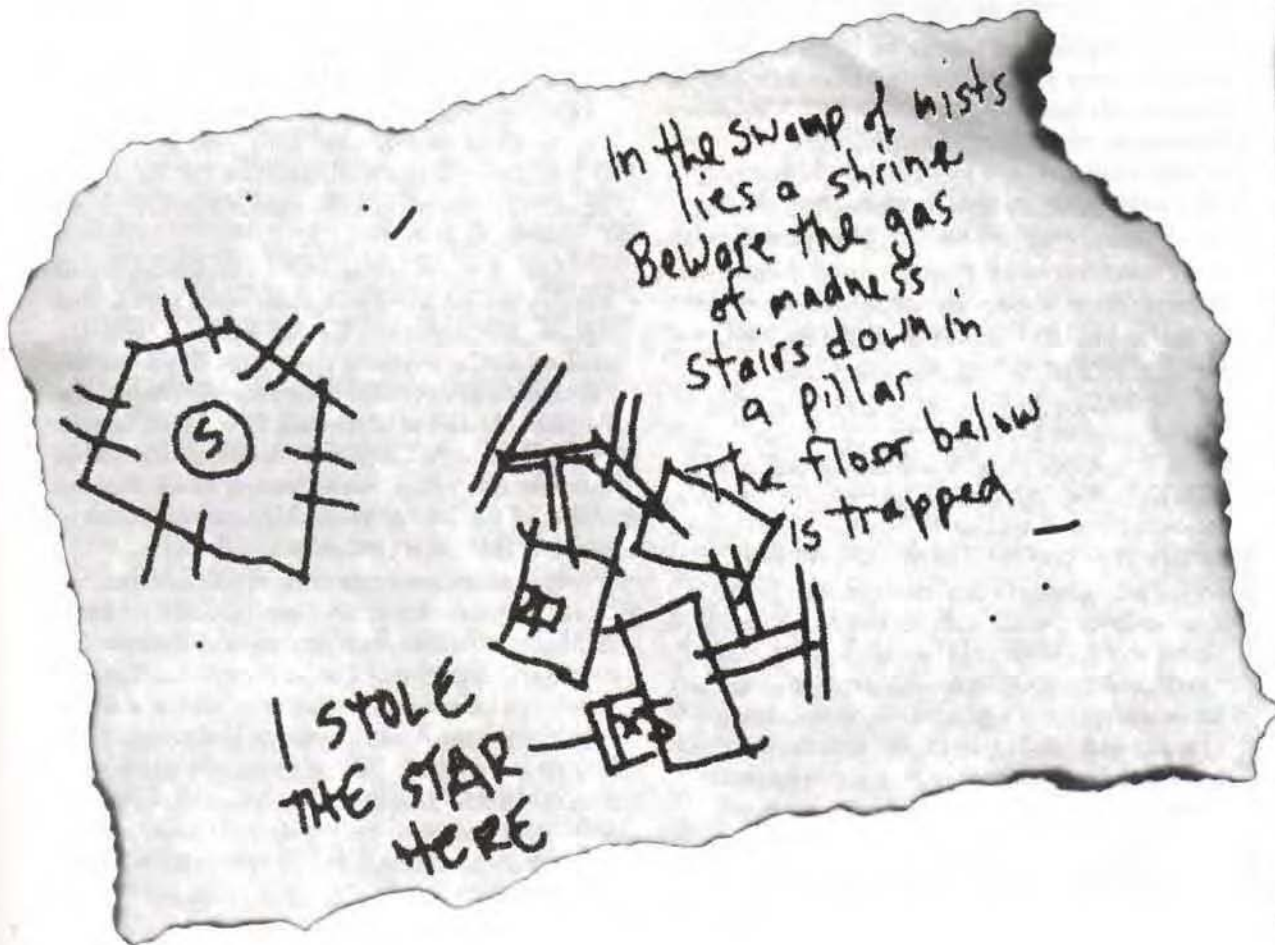 In the swamp of mists
lies a shrine
Beware the gas
of madness.
stairs down in
a pillar
The floor below
is trapped
S
I STOLE
THE STAR
HERE